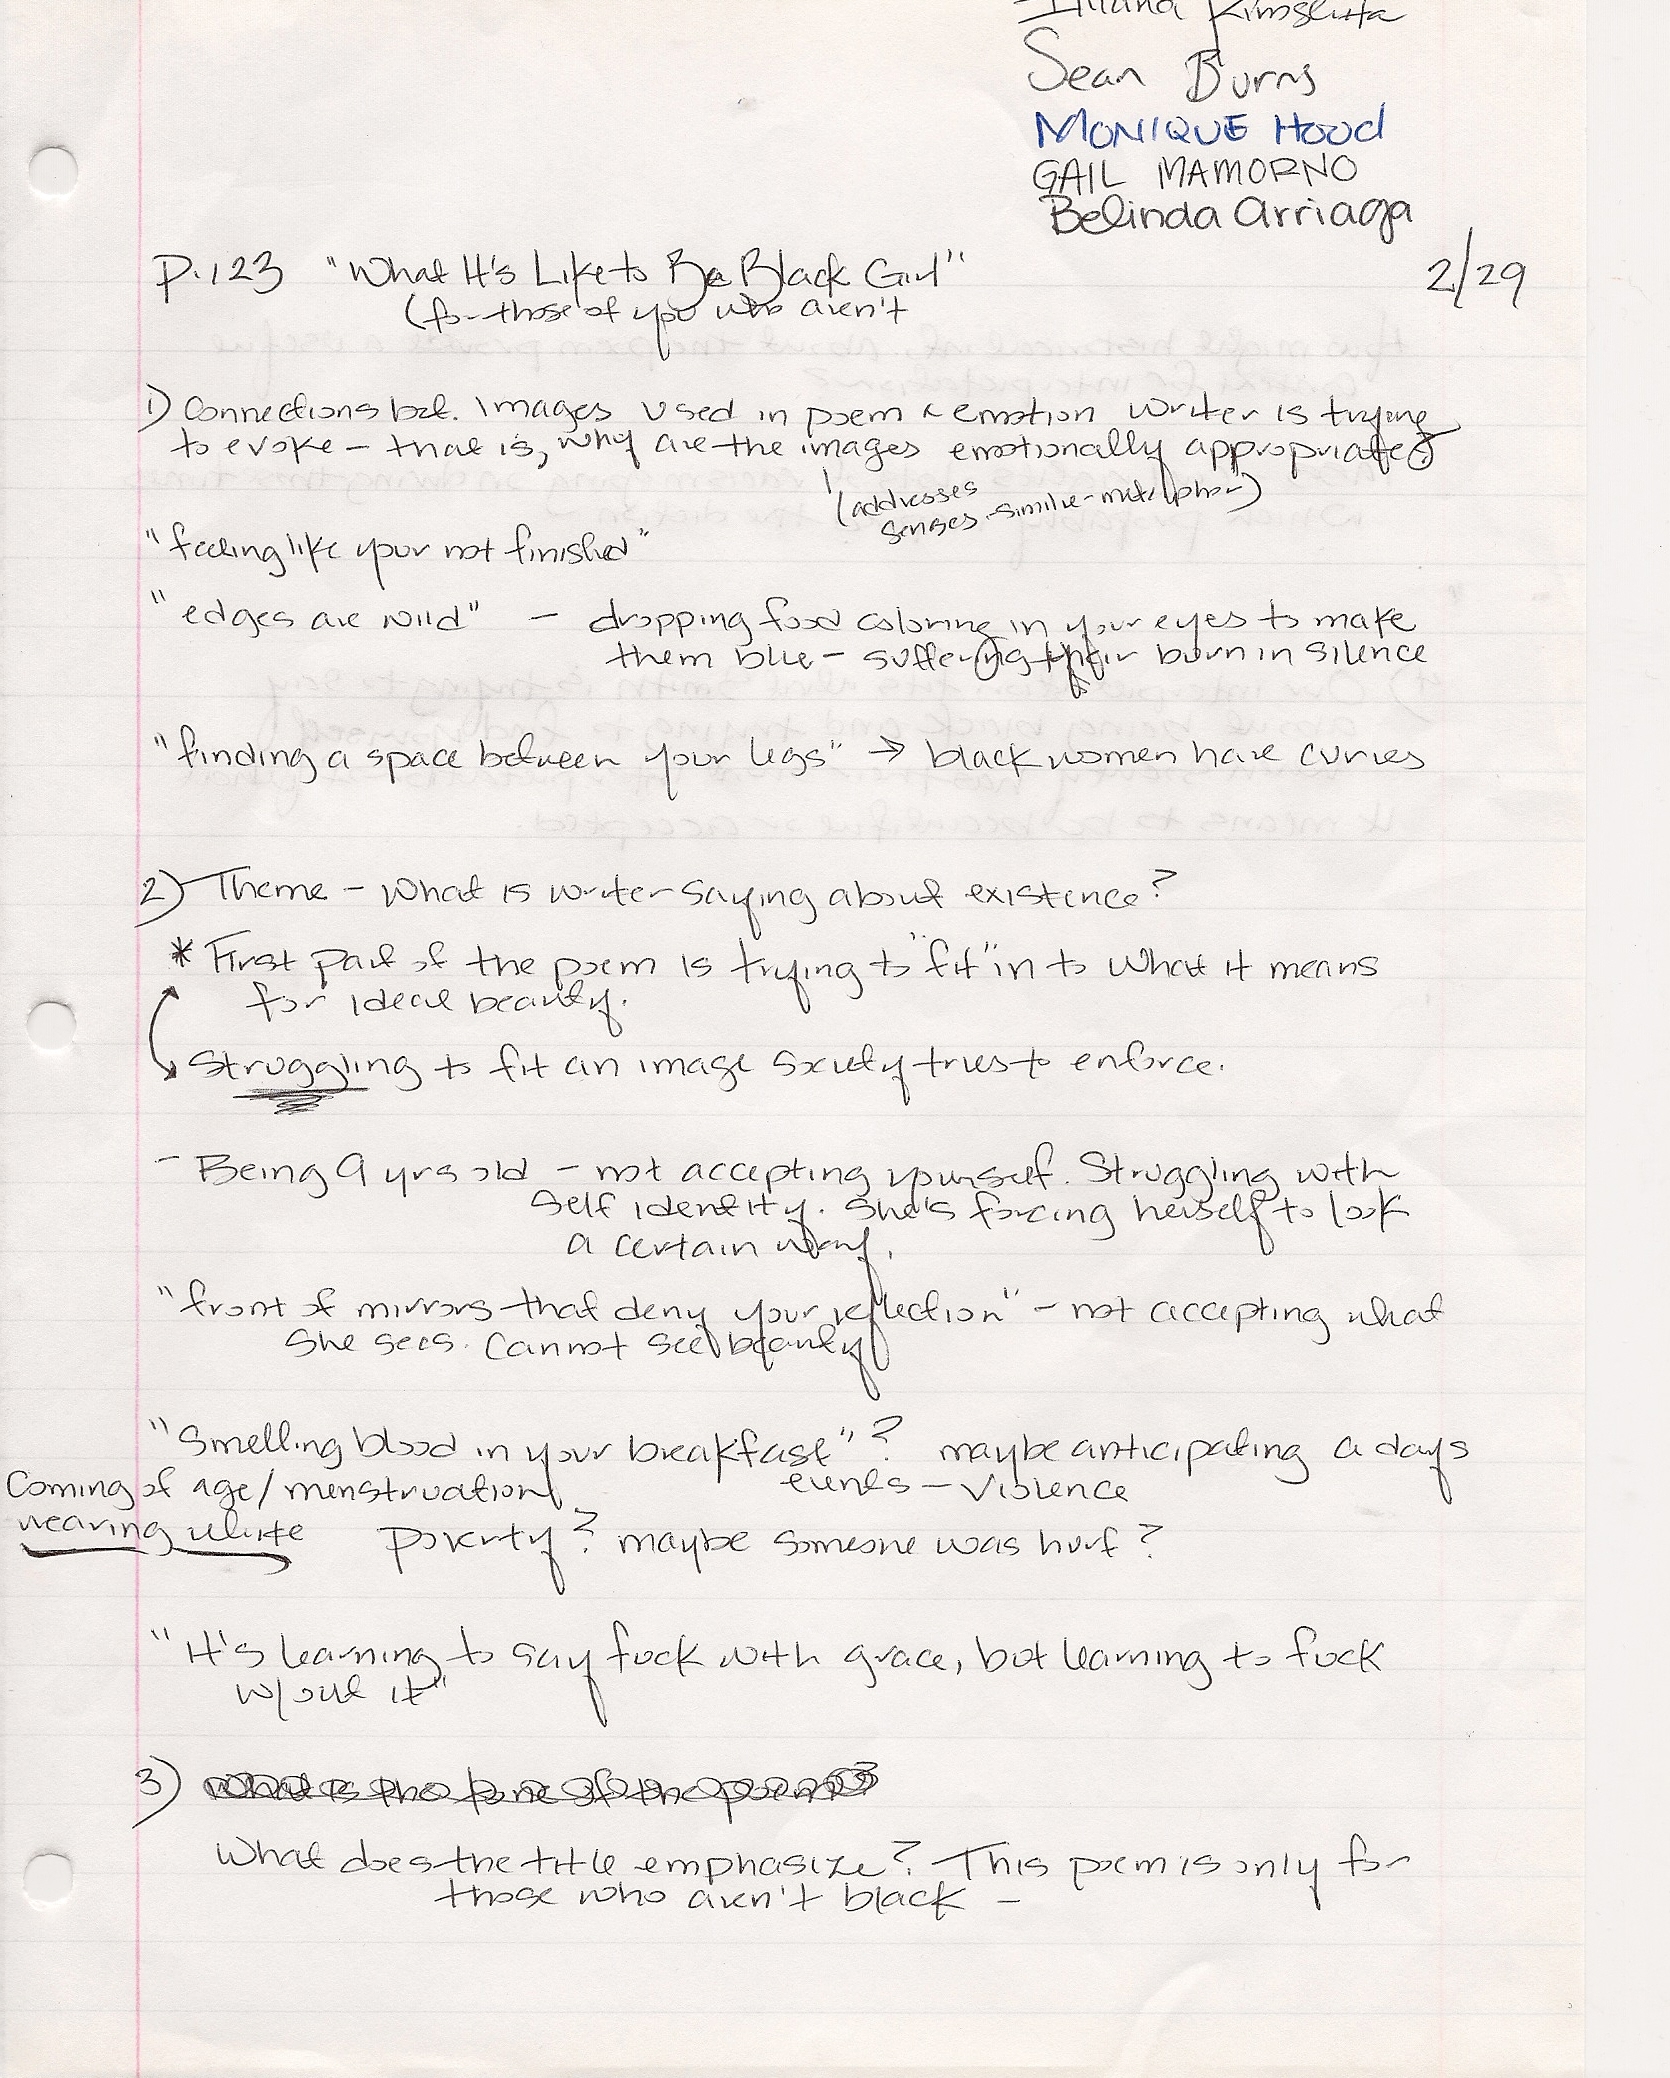 Sean Burns
MONIQUE Hood
GAIL MAMORNO
Belinda Arriaga
P.123 "What It's Like to Be Black Girl" 2/29
(for those of you who aren't
1) Connections bet. images used in poem & emotion writer is trying
to evoke - that is, why are the images emotionally appropriate?
(addresses
senses. similie - metaphor)
"feeling like your not finished"
"edges are wild" - dropping food coloring in your eyes to make
them blue - suffering their burn in silence
"finding a space between your legs" → black women have curves
2) Theme - What is writer saying about existence?
* First part of the poem is trying to "fit" in to what it means
for ideal beauty.
Struggling to fit an image society tries to enforce.
- Being 9 yrs old - not accepting yourself. Struggling with
self identity. She's forcing herself to look
a certain way.
"front of mirrors that deny your reflection" - not accepting what
she sees. Cannot see beauty
"Smelling blood in your breakfast"? maybe anticipating a days
Coming of age/menstruation events - violence
wearing white poverty? maybe someone was hurt?
"It's learning to say fuck with grace, but learning to fuck
w/out it"
3) What is the tone of the poem?
What does the title emphasize? This poem is only for
those who aren't black -